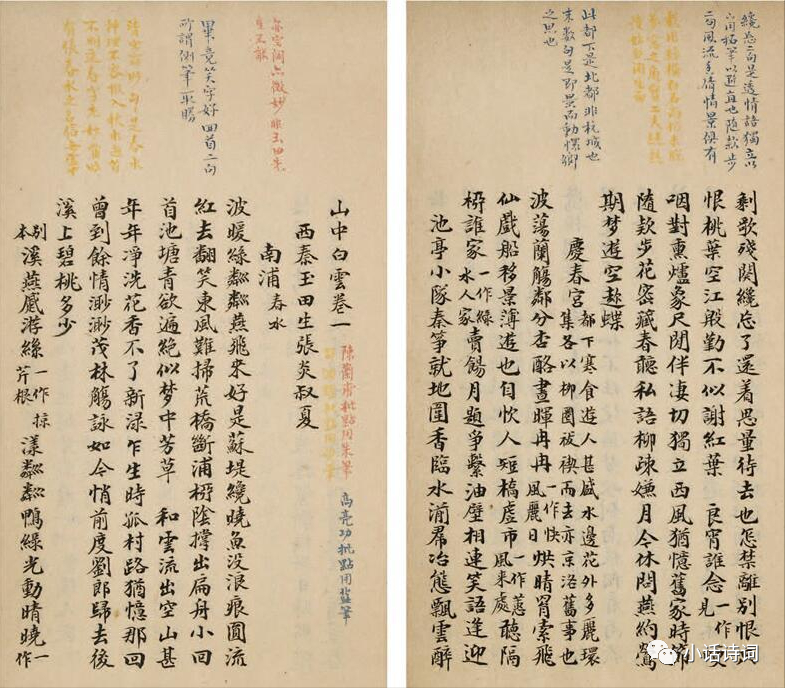 二句風流秀倩情景俱有
此都下是北都非杭城也
末數句是即景而動懷鄉
之思也
剩歌殘闋纔忘了還着思量待去也怎禁離別恨只
恨桃葉空江殷勤不似謝紅葉 良宵誰念一作見哽
咽對熏爐象尺閒伴凄切獨立西風猶憶舊家時節
隨款步花密藏春聽私語柳疎嫌月今休問燕約鶯
期夢遊空趁蝶
慶春宮 都下寒食遊人甚盛水邊花外多麗環
集各以柳圈祓禊而去亦京洛舊事也
波蕩蘭觴鄰分杏酪晝暉冉冉一作快風麗日烘晴罥索飛
仙戲船移景薄遊也自忺人短橋虛市一作蕙風來處聽隔
柳誰家一作綠水人家賣餳月題爭繫油壁相連笑語逢迎
池亭小隊秦箏就地圍香臨水湔帬冶態飄雲醉
畢竟笑字好回首二句
所謂側筆取勝
山中白雲卷一
陳蘭甫批點用朱筆
高亮功批點用藍筆
西秦玉田生張炎叔夏
南浦 春水
波暖綠粼粼燕飛來好是蘇堤纔曉魚没浪痕圓流
紅去翻笑東風難掃荒橋斷浦柳陰撐出扁舟小回
首池塘青欲遍絶似夢中芳草 和雲流出空山甚
年年凈洗花香不了新渌乍生時孤村路猶憶那回
曾到餘情渺渺茂林觴詠如今悄前度劉郎歸去後
溪上碧桃多少
别本溪燕蹙游絲一作掠芹根漾粼粼鴨綠光動晴曉一作
小话诗词